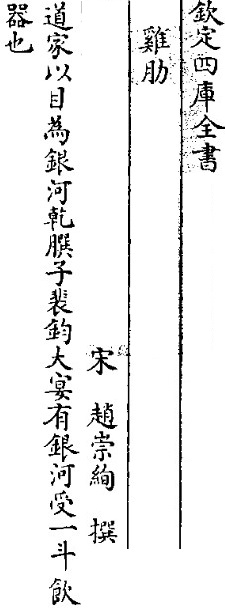 欽定四庫全書
雞肋
宋 趙崇絢 撰
道家以目為銀河乾䐑子裴鈞大宴有銀河受一斗飲
器也